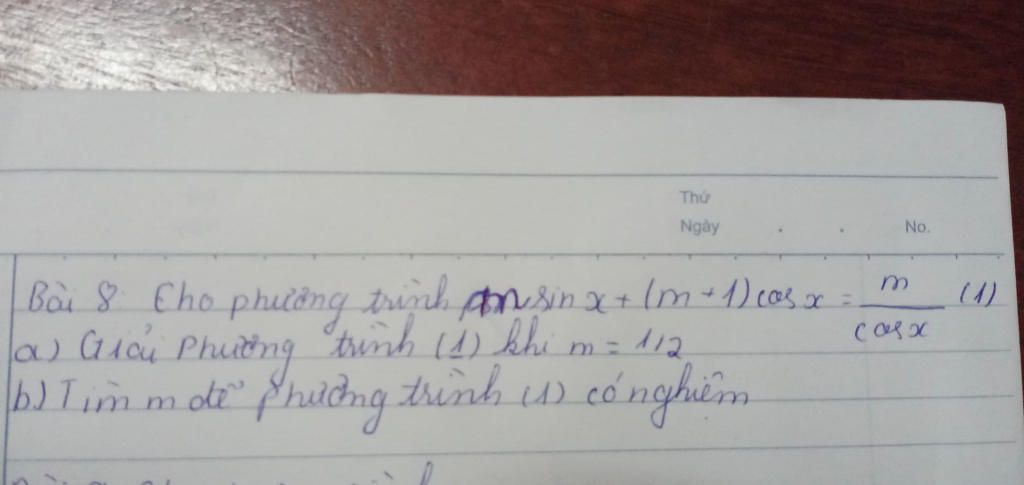 Thứ
Ngày . . No.
Bài 8: Cho phương trình m sin x + (m + 1) cos x = m / cos x (1)
a) Giải Phương trình (1) khi m = 1/2
b) Tìm m để phương trình (1) có nghiệm